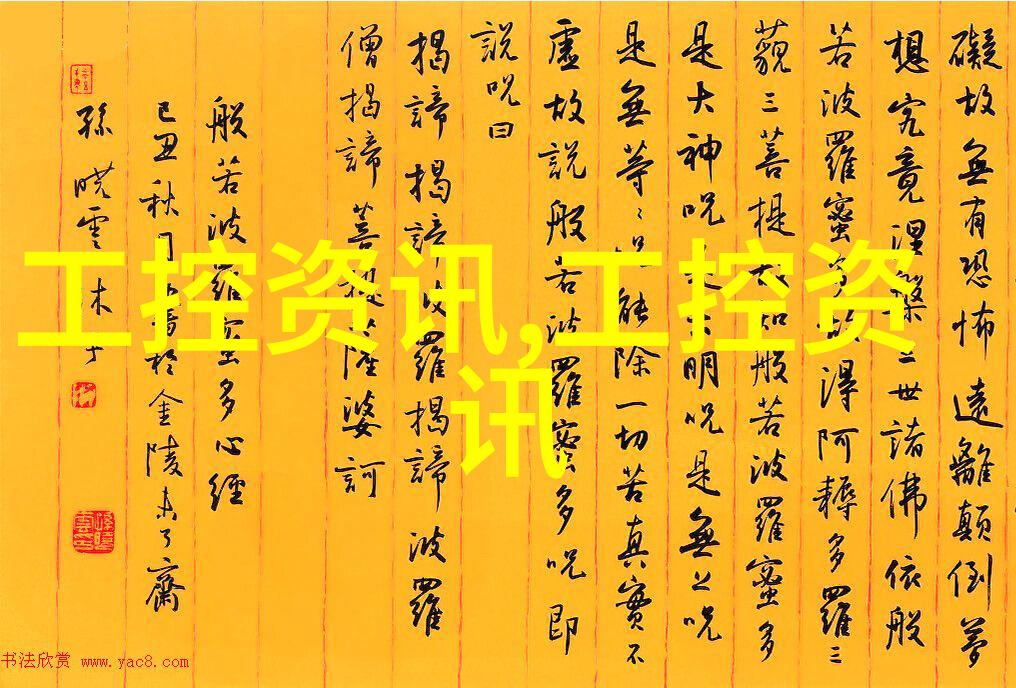 礙故無有恐怖遠離顛倒夢
想究竟涅槃三世諸佛依般
若波羅蜜多故得阿耨多羅三
藐三菩提故知般若波羅蜜多
是大神呪是大明呪是無上呪
是無等等呪能除一切苦真實不
虛故說般若波羅蜜多呪即
說呪曰
揭諦揭諦波羅揭諦波羅
僧揭諦菩提薩婆訶
般若波羅蜜多心經
己丑秋月於金陵未了齋
孫曉雲沐手
工控资讯,工控资
讯
书法欣赏 www.yac8.com